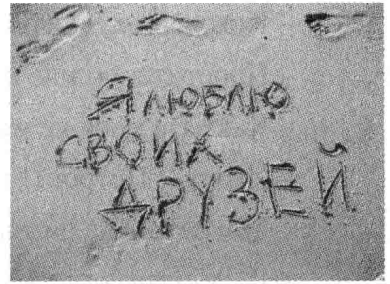 Я ЛЮБЛЮ
СВОИХ
ДРУЗЕЙ